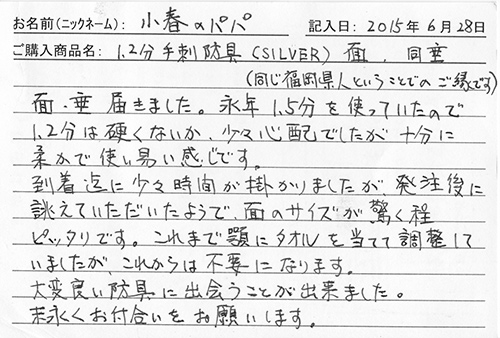 お名前(ニックネーム): 小春のパパ 記入日: 2015年6月28日
ご購入商品名: 1.2分手刺防具(SILVER) 面、同垂
(同じ福岡県人ということでのご縁です)
面・垂届きました。永年1.5分を使っていたので
1.2分は硬くないか、少々心配でしたが十分に
柔かで使い易い感じです。
到着迄に少々時間が掛かりましたが、発注後に
誂えていただいたようで、面のサイズが驚く程
ピッタリです。これまで顎にタオルを当てて調整して
いましたが、これからは不要になります。
大変良い防具に出会うことが出来ました。
末永くお付合いをお願いします。